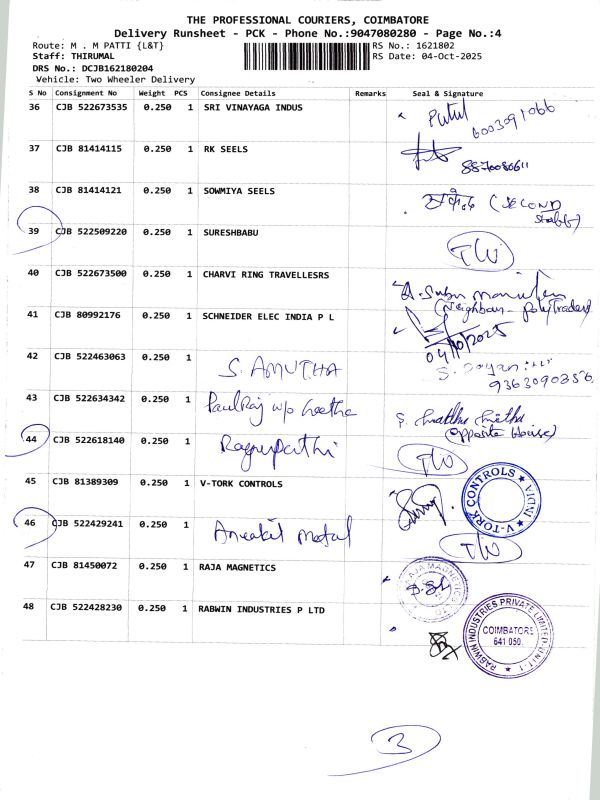 THE PROFESSIONAL COURIERS, COIMBATORE
Delivery Runsheet - PCK - Phone No.:9047080280 - Page No.:4
Route: M . M PATTI {L&T} RS No.: 1621802
Staff: THIRUMAL RS Date: 04-Oct-2025
DRS No.: DCJB162180204
Vehicle: Two Wheeler Delivery
S No Consignment No Weight PCS Consignee Details Remarks Seal & Signature
36 CJB 522673535 0.250 1 SRI VINAYAGA INDUS
6003091066
37 CJB 81414115 0.250 1 RK SEELS
8870080611
38 CJB 81414121 0.250 1 SOWMIYA SEELS
(SECOND
39 CJB 522509220 0.250 1 SURESHBABU
T/W
40 CJB 522673500 0.250 1 CHARVI RING TRAVELLESRS
(Neighbour - Poly Traders)
41 CJB 80992176 0.250 1 SCHNEIDER ELEC INDIA P L
04/10/2025
42 CJB 522463063 0.250 1 S. AMUTHA
9363090356
43 CJB 522634342 0.250 1 Paulraj w/o Geetha
(opposite House)
44 CJB 522618140 0.250 1 Ragupathi
T/W
45 CJB 81389309 0.250 1 V-TORK CONTROLS
V-TORK CONTROLS ★ INDIA ★
46 CJB 522429241 0.250 1 metal
T/W
47 CJB 81450072 0.250 1 RAJA MAGNETICS
48 CJB 522428230 0.250 1 RABWIN INDUSTRIES P LTD
RABWIN INDUSTRIES PRIVATE LIMITED-UNIT-1
COIMBATORE
641 050.
3